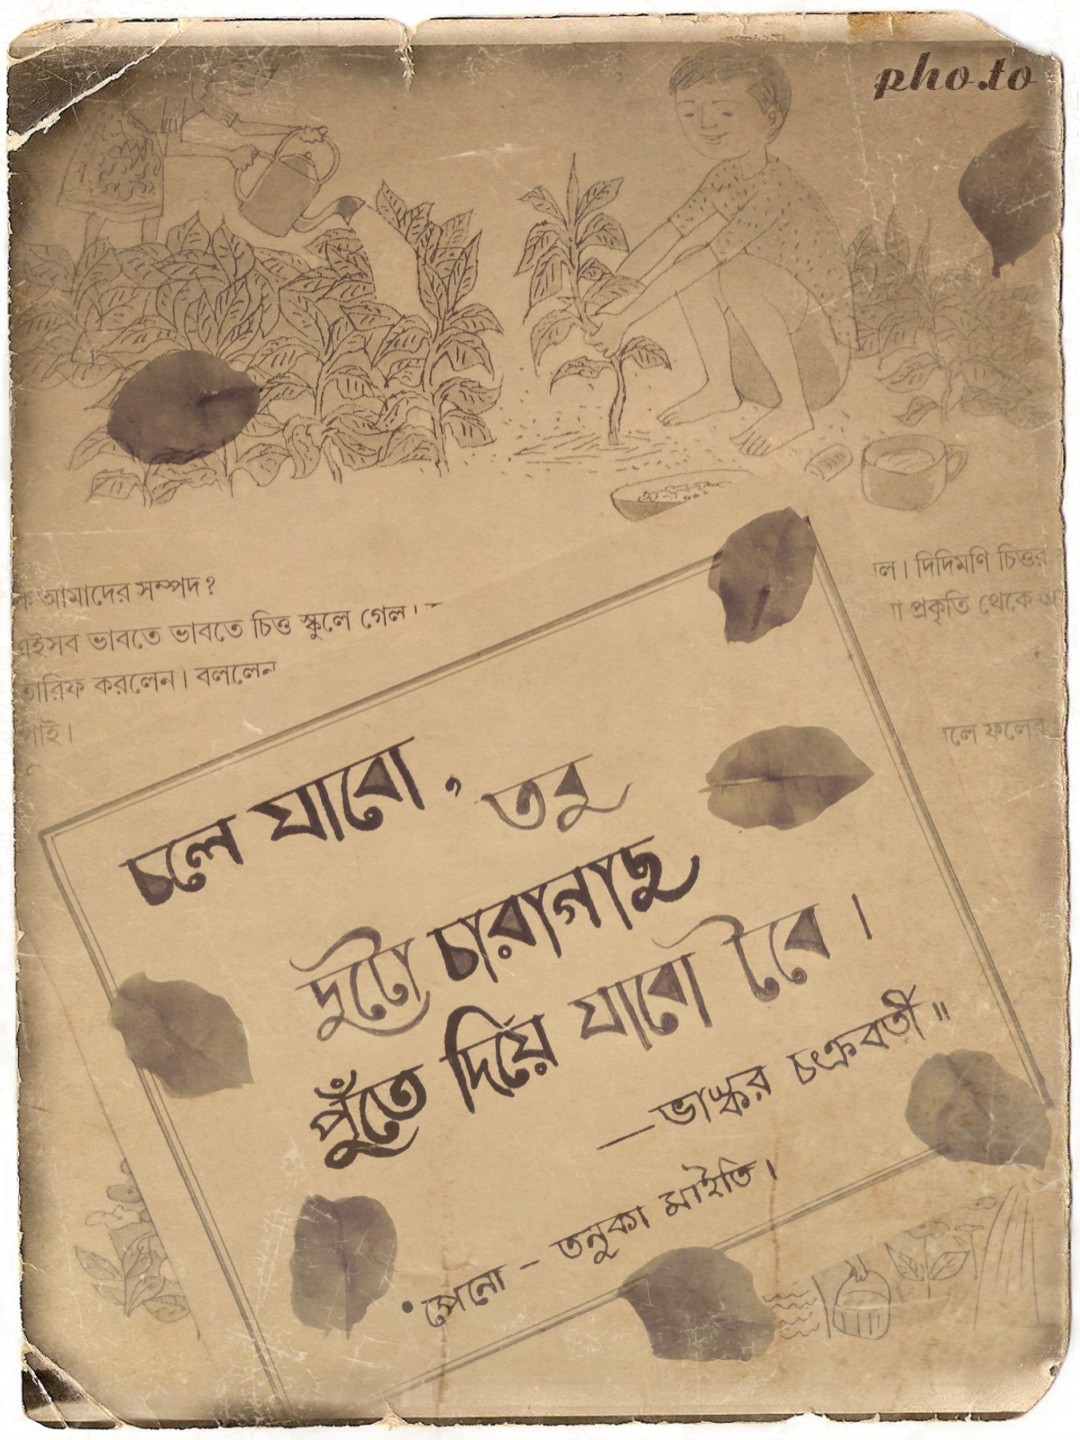 pho.to
আমাদের সম্পদ?
এইসব ভাবতে ভাবতে চিত্ত স্কুলে গেল।
তারিফ করলেন। বললেন
পাই।
ল। দিদিমণি চিত্তর
প্রকৃতি থেকে
লে ফলের
চলে যাবো, তবু
দুটো চারাগাছ
পুঁতে দিয়ে যাবো টবে।
—ভাস্কর চক্রবর্তী॥
পেনো - তনুকা মাইতি।